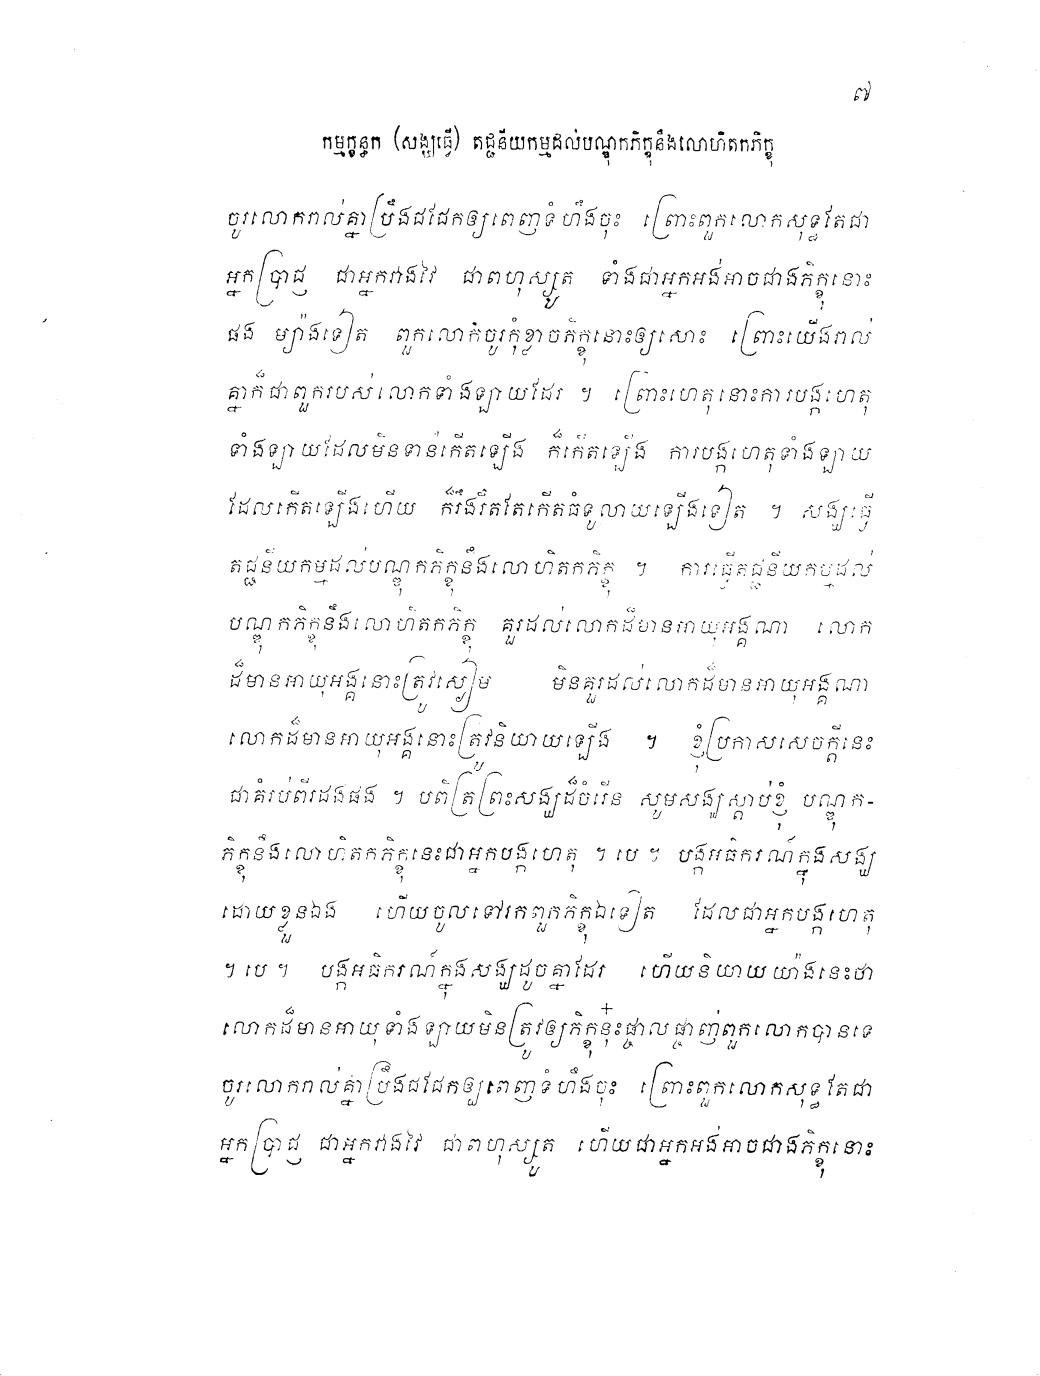 ៧
កម្មក្ខន្ធក (សង្ឃធ្វើ) តជ្ជនីយកម្មដល់បណ្ឌុកភិក្ខុនឹងលោហិតកភិក្ខុ
ចូរលោករាល់គ្នាប្រឹងជជែកឲ្យពេញទំហឹងចុះ ព្រោះពួកលោកសុទ្ធតែជា
អ្នកប្រាជ្ញ ជាអ្នកវាងវៃ ជាពហុស្សូត ទាំងជាអ្នកអង់អាចជាងភិក្ខុនោះ
ផង ម្យ៉ាងទៀត ពួកលោកចូរកុំខ្លាចភិក្ខុនោះឲ្យសោះ ព្រោះយើងរាល់
គ្នាក៏ជាពួករបស់លោកទាំងឡាយដែរ ។ ព្រោះហេតុនោះការបង្កហេតុ
ទាំងឡាយដែលមិនទាន់កើតឡើង ក៏កើតឡើង ការបង្កហេតុទាំងឡាយ
ដែលកើតឡើងហើយ ក៏រឹងរឹតតែកើតធំទូលាយឡើងទៀត ។ សង្ឃធ្វើ
តជ្ជនីយកម្មដល់បណ្ឌុកភិក្ខុនឹងលោហិតកភិក្ខុ ។ ការធ្វើតជ្ជនីយកម្មដល់
បណ្ឌុកភិក្ខុនឹងលោហិតកភិក្ខុ គួរដល់លោកដ៏មានអាយុអង្គណា លោក
ដ៏មានអាយុអង្គនោះត្រូវស្ងៀម មិនគួរដល់លោកដ៏មានអាយុអង្គណា
លោកដ៏មានអាយុអង្គនោះត្រូវនិយាយឡើង ។ ខ្ញុំប្រកាសសេចក្តីនេះ
ជាគំរប់ពីរដងផង ។ បពិត្រព្រះសង្ឃដ៏ចំរើន សូមសង្ឃស្តាប់ខ្ញុំ បណ្ឌុក-
ភិក្ខុនឹងលោហិតកភិក្ខុនេះជាអ្នកបង្កហេតុ ។ បេ ។ បង្កអធិករណ៍ក្នុងសង្ឃ
ដោយខ្លួនឯង ហើយចូលទៅរកពួកភិក្ខុឯទៀត ដែលជាអ្នកបង្កហេតុ
។ បេ ។ បង្កអធិករណ៍ក្នុងសង្ឃដូចគ្នាដែរ ហើយនិយាយយ៉ាងនេះថា
លោកដ៏មានអាយុទាំងឡាយមិនត្រូវឲ្យភិក្ខុនុ៎ះផ្ចាលផ្ចាញ់ពួកលោកបានទេ
ចូរលោករាល់គ្នាប្រឹងជជែកឲ្យពេញទំហឹងចុះ ព្រោះពួកលោកសុទ្ធតែជា
អ្នកប្រាជ្ញ ជាអ្នកវាងវៃ ជាពហុស្សូត ហើយជាអ្នកអង់អាចជាងភិក្ខុនោះ